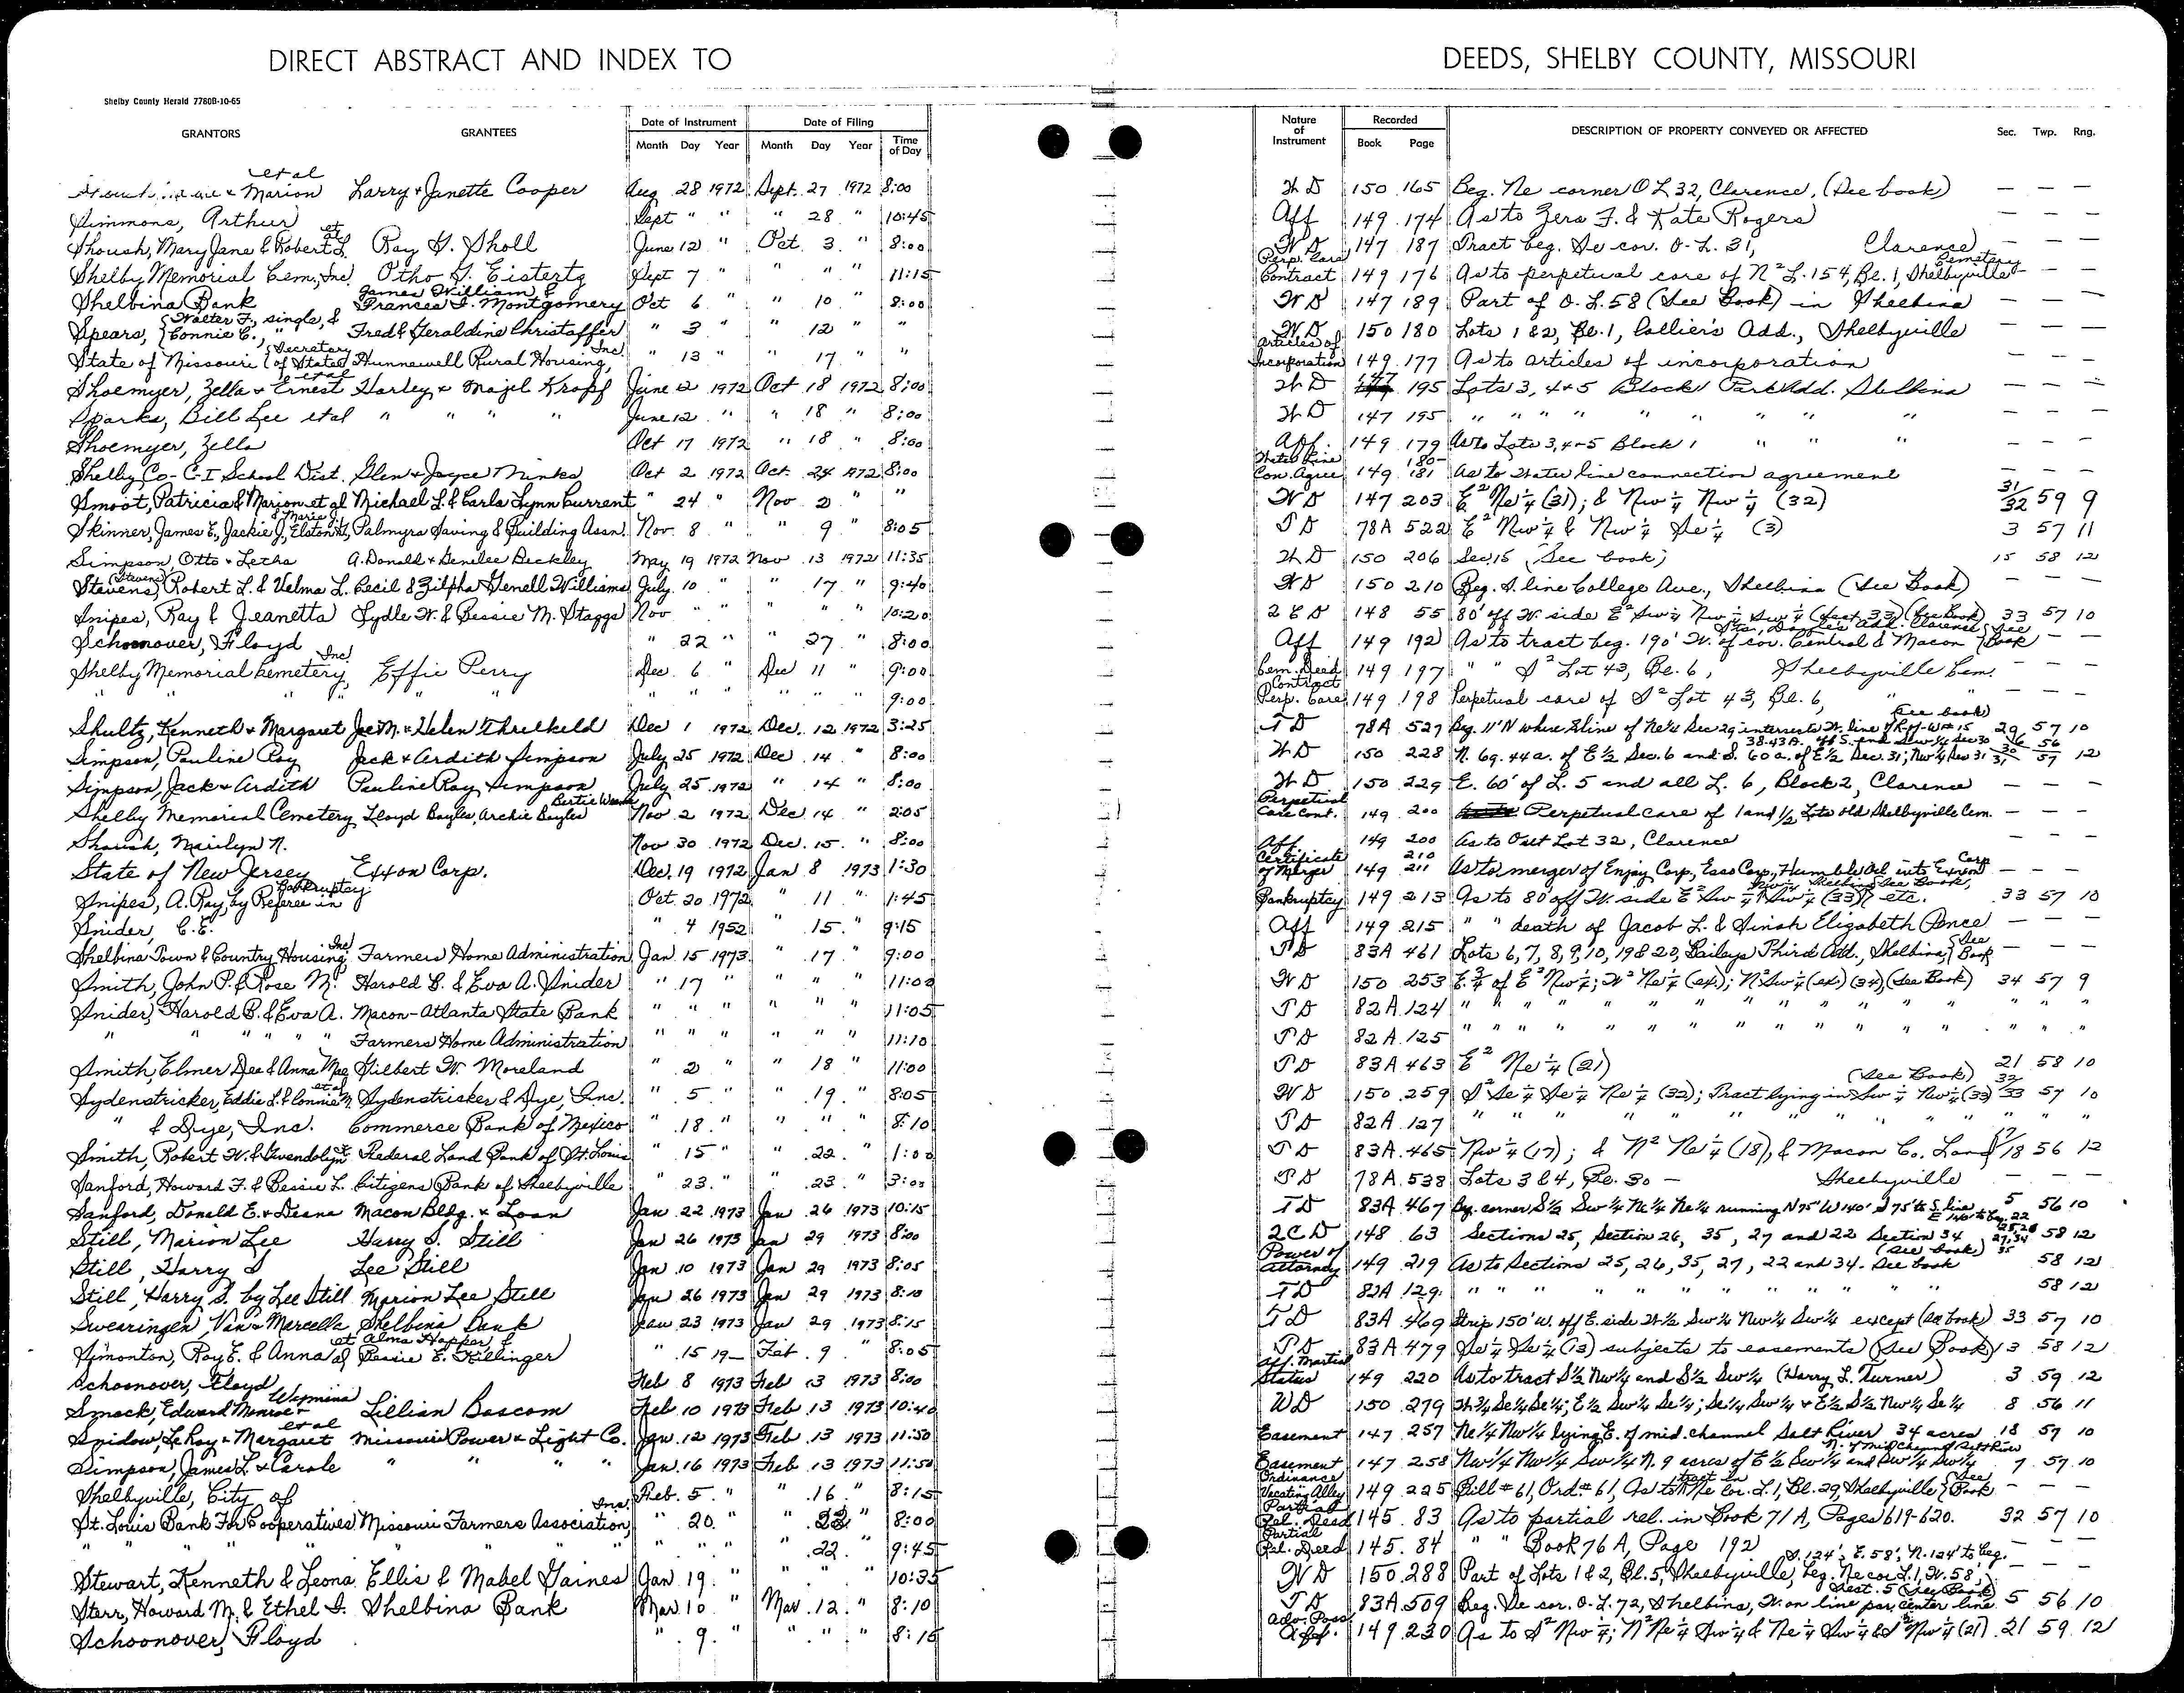 DIRECT ABSTRACT AND INDEX TO DEEDS, SHELBY COUNTY, MISSOURI
Shelby County Herald 7780B-10-65
GRANTORS GRANTEES Date of Instrument Month Day Year Date of Filing Month Day Year Time of Day Nature of Instrument Recorded Book Page DESCRIPTION OF PROPERTY CONVEYED OR AFFECTED Sec. Twp. Rng.
& Marion et al Larry & Janette Cooper Aug 28 1972 Sept. 27 1972 8:00 W D 150 165 Beg. Ne corner O L 32, Clarence, (See book) — — —
Simmons, Arthur Sept " " " 28 " 10:45 Aff 149 174 As to Zera F. & Kate Rogers — — —
Shoush, Mary Jane & Robert L. et al Roy G. Sholl June 12 " Oct. 3 " 8:00 W D 147 187 Tract beg. Se cor. O-L. 31, Clarence — — —
Shelby Memorial Cem., Inc. Otho G. Eistertz Sept 7 " " " " 11:15 Perp. Care Contract 149 176 As to perpetual care of N² L. 154, Bl. 1, Shelbyville Cemetery — — —
Shelbina Bank James William & Frances I. Montgomery Oct 6 " " 10 " 8:00 W D 147 189 Part of O. L. 58 (See Book) in Shelbina — — —
Spears, {Walter F., single, & Connie C., " Fred & Geraldine Christaffer " 3 " " 12 " " W D 150 180 Lots 1 & 2, Bl. 1, Collier's Add., Shelbyville — — —
State of Missouri (Secretary of State) Hunnewell Rural Housing, Inc " 13 " " 17 " " Articles of Incorporation 149 177 As to articles of incorporation — — —
Shoemyer, Zella & Ernest et al Harley & Majel Kropf June 12 1972 Oct 18 1972 8:00 W D 147 195 Lots 3, 4 & 5 Block 1 Park Add. Shelbina — — —
Sparks, Bill Lee et al " " " " June 12 " " 18 " 8:00 W D 147 195 " " " " " " " " — — —
Shoemyer, Zella Oct 17 1972 " 18 " 8:00 Aff. 149 179 As to Lots 3, 4-5 Block 1 " " " — — —
Shelby Co- C-I School Dist. Glen & Joyce Minks Oct 2 1972 Oct. 24 1972 8:00 Water Line Con. Agree 149 180-181 As to Water line connection agreement
Smoot, Patricia & Marion et al Michael L. & Carla Lynn Current " 24 " Nov 2 " " W D 147 203 E² Ne¼ (31); & Nw ¼ Nw ¼ (32) 31/32 59 9
Skinner, James E., Jackie J., Elston H. & Marie J., Palmyra Saving & Building Assn. Nov. 8 " " 9 " 8:05 T D 78A 522 E² Nw ¼ & Nw ¼ Se ¼ (3) 3 57 11
Simpson, Otto & Letha A. Donald & Genilee Beckley May 19 1972 Nov 13 1972 11:35 W D 150 206 Sec. 15 (See book) 15 58 12
Stevens, (Stevens) Robert L. & Velma L. Cecil & Zilpha Genell Williams July 10 " " 17 " 9:40 W D 150 210 Beg. S. line College Ave., Shelbina (See Book) — — —
Snipes, Ray & Jeanetta Lydle W. & Bessie M. Staggs Nov " " " " " 10:20 Q C D 148 55 80' off W. side E² Sw ¼ Nw ¼ Sw ¼ (Sect. 33) (See Book) 33 57 10
Schoonover, Floyd " 22 " " 27 " 8:00 Aff 149 192 As to tract beg. 190' W. of cor. Central & Macon Sts., Doyle's Add. Clarence {See Book — —
Shelby Memorial Cemetery, Inc. Effie Perry Dec. 6 " Dec 11 " 9:00 Cem. Deed 149 197 " " S² Lot 43, Bl. 6, Shelbyville Cem. — — —
" " " " " " " " 9:00 Contract Perp. Care 149 198 Perpetual care of S² Lot 43, Bl. 6, " " — — —
Shultz, Kenneth & Margaret Joe M. & Helen Threlkeld Dec 1 1972 Dec. 12 1972 3:25 T D 78A 527 Beg. 11' N where S line of Ne¼ Sec 29 intersects W. line of R-of-W # 15 (See book) 29 57 10
Simpson, Pauline Roy Jack & Ardith Simpson July 25 1972 Dec. 14 " 8:00 W D 150 228 N. 69.44 a. of E ½ Sec. 6 and S. 60 a. of E½ Sec. 31; Nw ¼ Sec 31 38.43 A. off S. end Sw ¼ Sec 30 6 30 31 56 57 12
Simpson, Jack & Ardith Pauline Roy Simpson July 25 1972 " 14 " 8:00 W D 150 229 E. 60' of L. 5 and all L. 6, Block 2, Clarence — — —
Shelby Memorial Cemetery Lloyd Bayles, Archie Bayles Nov 2 1972 Dec 14 " 2:05 Perpetual Care Cont. 149 200 Perpetual care of 1 and ½ Lots old Shelbyville Cem. — — —
Shoush, Marilyn N. Nov 30 1972 Dec. 15. " 8:00 Aff 149 200 As to Out Lot 32, Clarence — — —
State of New Jersey Exxon Corp. Dec. 19 1972 Jan 8 1973 1:30 Certificate of Merger 149 210 211 As to merger of Enjay Corp, Esso Corp, Humble Oil into Exxon Corp — — —
Snipes, A. Ray, by Referee in Bankruptcy Oct. 20 1972 " 11 " 1:45 Bankruptcy 149 213 As to 80' off W. side E² Sw ¼ Nw ¼ Sw ¼ (33), etc. Shelbina See Book, 33 57 10
Snider, C.E. " 4 1952 " 15. " 9:15 Aff 149 215 " " death of Jacob L. & Sinah Elizabeth Pence — — —
Shelbina Town & Country Housing, Inc Farmers Home Administration Jan. 15 1973 " 17 " 9:00 T D 83A 461 Lots 6, 7, 8, 9, 10, 19 & 20, Baileys Third Add., Shelbina, {See Book — — —
Smith, John P. & Rose M. Harold B. & Eva A. Snider " 17 " " " " 11:00 W D 150 253 E. ¾ of E² Nw ¼; W² Ne ¼ (ex); N² Sw ¼ (ex) (34), (See Book) 34 57 9
Snider, Harold B. & Eva A. Macon-Atlanta State Bank " " " " " " 11:05 T D 82A 124 " " " " " " " " " " "
" " " " " Farmers Home Administration " " " " " " 11:10 T D 82A 125 " " " " " " " " " " "
Smith, Elmer Dee & Anna Mae Gilbert W. Moreland " 2 " " 18 " 11:00 T D 83A 463 E² Ne ¼ (21) 21 58 10
Sydenstricker, Eddie L. & Connie M. et al Sydenstricker & Dye, Inc. " 5 " " 19. " 8:05 W D 150 259 S² Se ¼ Se ¼ Ne ¼ (32); Tract lying in Sw ¼ Nw ¼ (33) (See Book) 32 33 57 10
" & Dye, Inc. Commerce Bank of Mexico " 18. " " " " 8:10 T D 82A 127 " " " " " " " " " "
Smith, Robert W. & Gwendolyn Federal Land Bank of St. Louis " 15 " " 22. " 1:00 T D 83A 465 Nw ¼ (17); & N² Ne ¼ (18), & Macon Co. Land 17/18 56 12
Sanford, Howard F. & Bessie L. Citizens Bank of Shelbyville " 23. " " 23. " 3:00 T D 78A 538 Lots 3 & 4, Bl. 30 — Shelbyville — —
Sanford, Donald E. & Deana Macon Bldg. & Loan Jan 22 1973 Jan 26 1973 10:15 T D 83A 467 Beg. corner S½ Sw ¼ Ne ¼ Ne ¼ running N 75' W 140' S 75' to S. line E 140' to beg. 5 56 10
Still, Marion Lee Harry S. Still Jan 26 1973 Jan 29 1973 8:00 Q C D 148 63 Sections 25, Section 26, 35, 27 and 22 Section 34 (See book) 22 25,26 27,34 35 58 12
Still, Harry S Lee Still Jan 10 1973 Jan 29 1973 8:05 Power of Attorney 149 219 As to Sections 25, 26, 35, 27, 22 and 34. See book 58 12
Still, Harry S. by Lee Still Marion Lee Still Jan 26 1973 Jan 29 1973 8:10 T D 82A 129 " " " " " " " " 58 12
Swearingen, Van & Marcella Shelbina Bank Jan 23 1973 Jan 29 1973 8:15 T D 83A 469 Strip 150' W. off E. side W ½ Sw ¼ Nw ¼ Sw ¼ except (See book) 33 57 10
Simonton, Roy E. & Anna et al Alma Hopper & Bessie E. Killinger " 15 19— Feb. 9 " 8:05 T D 83A 479 Se ¼ Se ¼ (13) subjects to easements (See Book) 13 58 12
Schoonover, Floyd Feb 8 1973 Feb 13 1973 8:00 Aff. Marital Status 149 220 As to tract S½ Nw¼ and S½ Sw¼ (Harry L. Turner) 3 59 12
Smock, Edward Monroe & Wymina Lillian Bascom Feb 10 1973 Feb 13 1973 10:40 WD 150 279 W ¾ Se¼ Se¼; E½ Sw¼ Se¼; Se¼ Sw¼ & E½ S½ Nw¼ Se¼ 8 56 11
Snidow, LeRoy & Margaret et al Missouri Power & Light Co. Jan. 12 1973 Feb 13 1973 11:50 Easement 147 257 Ne¼ Nw¼ lying E. of mid. channel Salt River 34 acres 18 57 10
Simpson, James L. & Carole " " " " Jan. 16 1973 Feb 13 1973 11:50 Easement 147 258 Nw¼ Nw¼ Sw¼ N. 9 acres of E½ Sw¼ and Sw¼ Sw¼ N. of mid channel Salt River 7 57 10
Shelbyville, City of Feb. 5. " " 16 " 8:15 Ordinance Vacating Alley 149 225 Bill #61, Ord #61, As to tract in Ne Cor. L. 1, Bl. 29, Shelbyville {See Book — — —
St. Louis Bank For Cooperatives Missouri Farmers Association, Inc. " 20. " " 22 " 8:00 Partial Rel. Deed 145 83 As to partial rel. in Book 71A, Pages 619-620. 32 57 10
" " " " " " " " " " 22. " 9:45 Partial Rel. Deed 145 84 " " Book 76A, Page 192 — — —
Stewart, Kenneth & Leona Ellis & Mabel Gaines Jan 19. " " " " 10:35 W D 150 288 Part of Lots 1 & 2, Bl. 5, Shelbyville, beg. Ne cor. L. 1, W. 58', S. 124', E. 58', N. 124' to beg. — — —
Starr, Howard M. & Ethel I. Shelbina Bank Mar. 10 " Mar. 12. " 8:10 T D 83A 509 Beg. Se cor. O. L. 72, Shelbina, W. on line par. center line Sect. 5 (See Book) 5 56 10
Schoonover, Floyd " 9. " " " " 8:15 Adv. Poss. Aff. 149 230 As to S² Nw ¼; N² Ne ¼ Sw ¼ & Ne ¼ Sw ¼ & S² Nw ¼ (21) 21 59 12